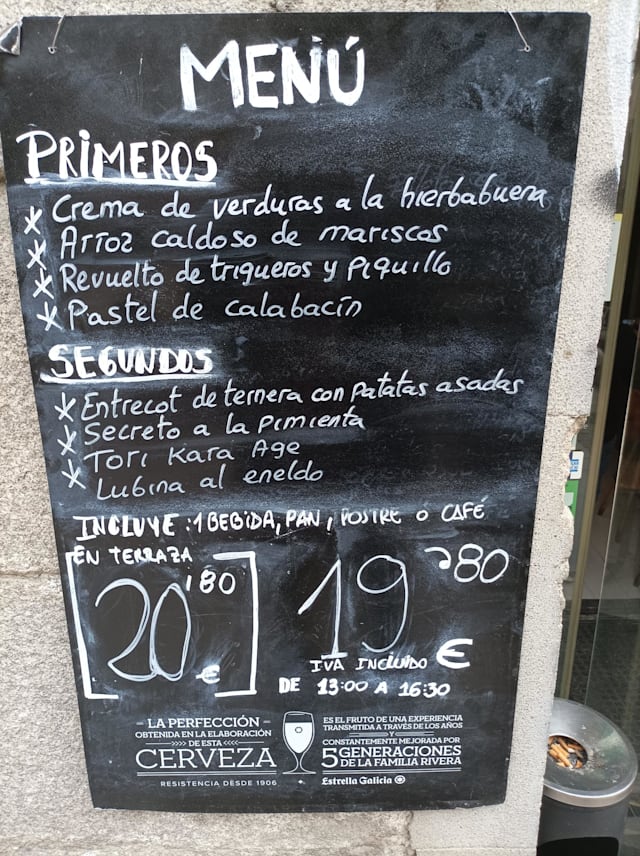 MENÚ
PRIMEROS
* Crema de verduras a la hierbabuena
* Arroz caldoso de mariscos
* Revuelto de trigueros y piquillo
* Pastel de calabacín
SEGUNDOS
* Entrecot de ternera con patatas asadas
* Secreto a la pimienta
* Tori Kara Age
* Lubina al eneldo
INCLUYE: 1 BEBIDA, PAN, POSTRE o CAFÉ
EN TERRAZA
20'80 €
19'80 €
IVA INCLUIDO
DE 13:00 A 16:30
LA PERFECCIÓN
OBTENIDA EN LA ELABORACIÓN
DE ESTA
CERVEZA
RESISTENCIA DESDE 1906
ES EL FRUTO DE UNA EXPERIENCIA
TRANSMITIDA A TRAVÉS DE LOS AÑOS
Y
CONSTANTEMENTE MEJORADA POR
5 GENERACIONES
DE LA FAMILIA RIVERA
Estrella Galicia